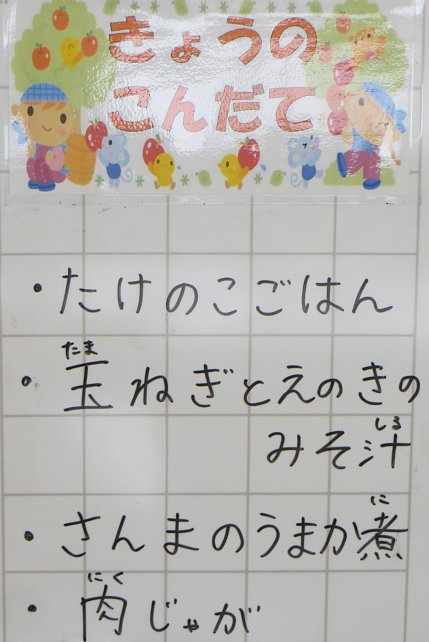 きょうの
こんだて
・たけのこごはん
・玉ねぎとえのきの
みそ汁
・さんまのうまか煮
・肉じゃが